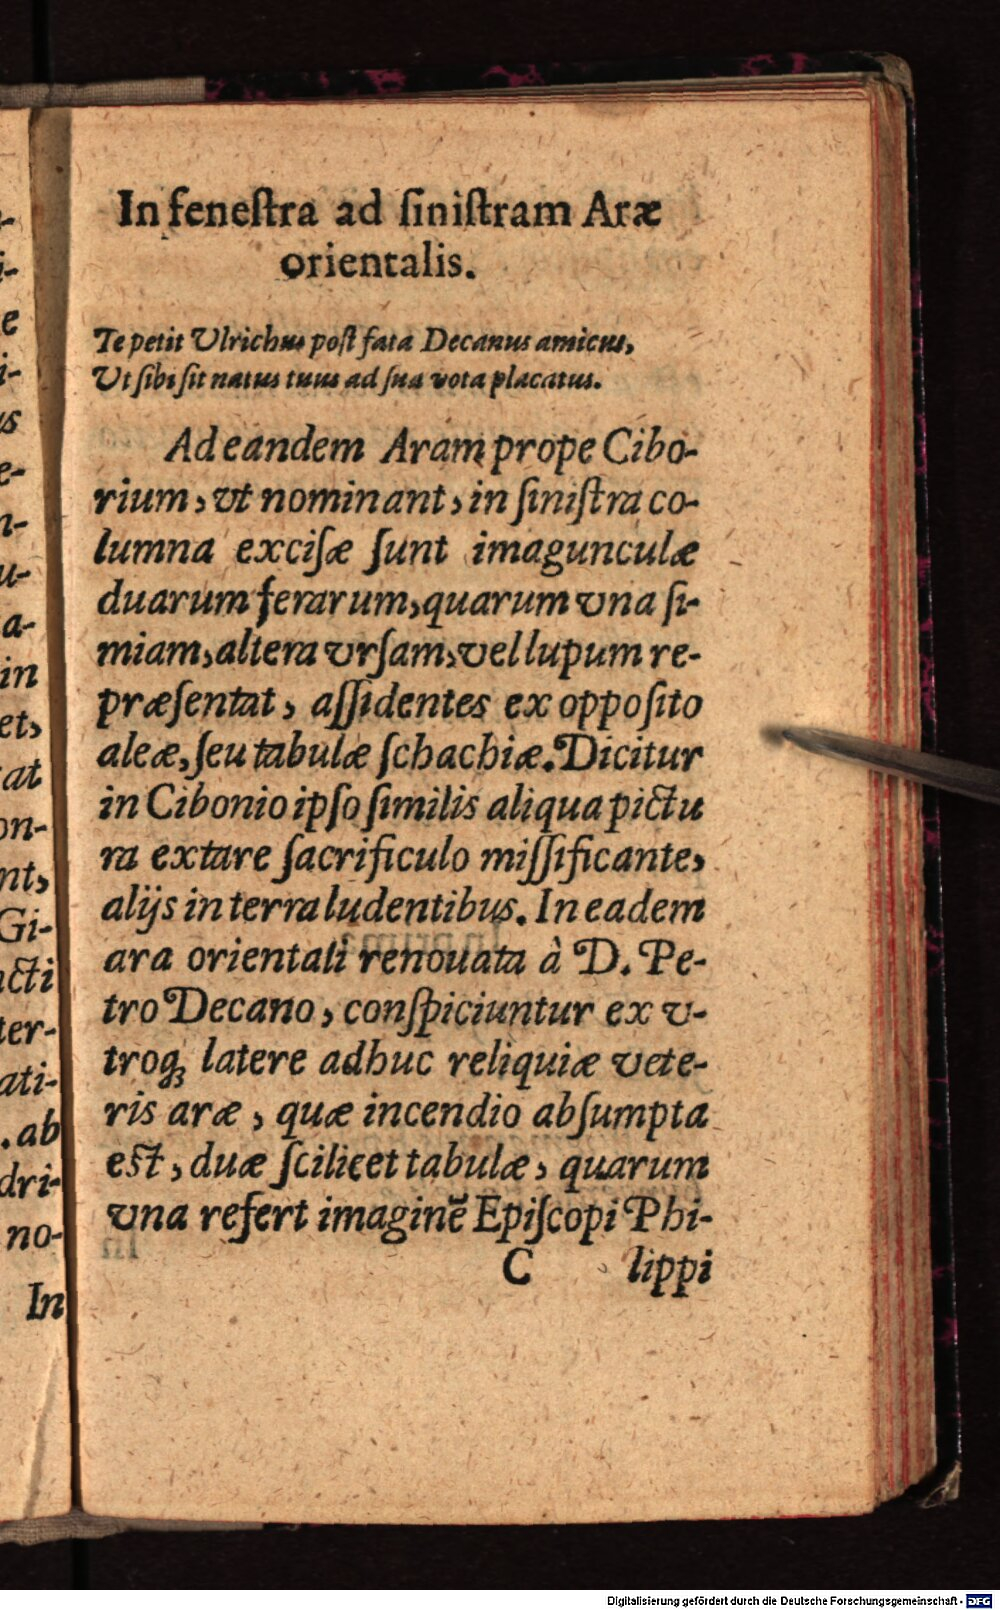 In feneſtra ad ſiniſtram Aræ
orientalis.
Te petit Ulrichus poſt fata Decanus amicus,
Ut ſibi ſit natus tuus ad ſua vota placatus.
Ad eandem Aram prope Cibo-
rium, vt nominant, in ſiniſtra co-
lumna exciſæ ſunt imagunculæ
duarum ferarum, quarum vna ſi-
miam, altera vrſam, vel lupum re-
præſentat, aſſidentes ex oppoſito
aleæ, ſeu tabulæ ſchachiæ. Dicitur
in Cibonio ipſo ſimilis aliqua pictu
ra extare ſacrificulo miſſificante,
alijs in terra ludentibus. In eadem
ara orientali renouata à D. Pe-
tro Decano, conſpiciuntur ex v-
troq́; latere adhuc reliquiæ vete-
ris aræ, quæ incendio abſumpta
eſt, duæ ſcilicet tabulæ, quarum
vna refert imaginẽ Epiſcopi Phi-
C lippi
-
i-
e
i-
us
e-
n-
u-
a-
in
et,
at
on-
nt,
Gi-
cti
ter-
ati-
. ab
dri-
no-
In
Digitalisierung gefördert durch die Deutsche Forschungsgemeinschaft - DFG